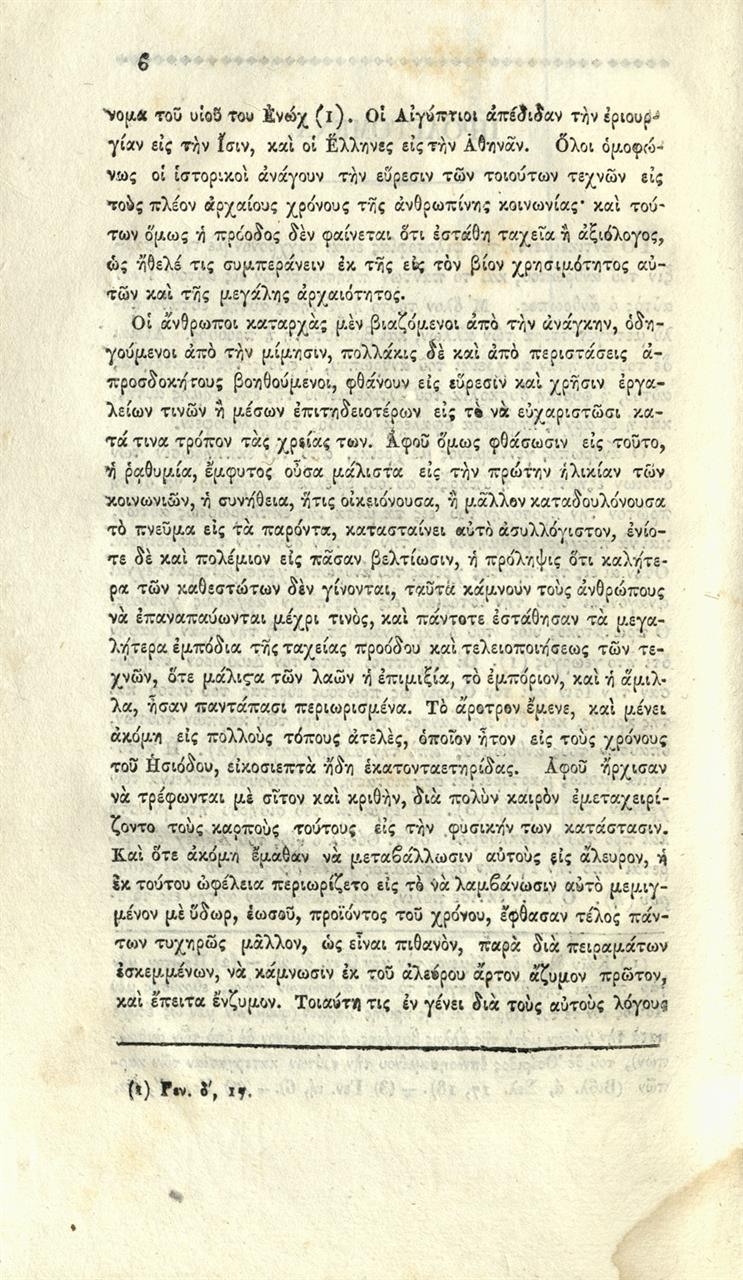 6
νομα τοῦ υἱοῦ του Ἐνώχ (1). Οἱ Αἰγύπτιοι ἀπέδιδαν τὴν ἐριουρ-
γίαν εἰς τὴν Ἶσιν, καὶ οἱ Ἕλληνες εἰς τὴν Ἀθηνᾶν. Ὅλοι ὁμοφώ-
νως οἱ ἱστορικοὶ ἀνάγουν τὴν εὕρεσιν τῶν τοιούτων τεχνῶν εἰς
τοὺς πλέον ἀρχαίους χρόνους τῆς ἀνθρωπίνης κοινωνίας· καὶ τού-
των ὅμως ἡ πρόοδος δὲν φαίνεται ὅτι ἐστάθη ταχεῖα ἢ ἀξιόλογος,
ὡς ἤθελέ τις συμπεράνειν ἐκ τῆς εἰς τὸν βίον χρησιμότητος αὐ-
τῶν καὶ τῆς μεγάλης ἀρχαιότητος.
Οἱ ἄνθρωποι καταρχὰς μὲν βιαζόμενοι ἀπὸ τὴν ἀνάγκην, ὁδη-
γούμενοι ἀπὸ τὴν μίμησιν, πολλάκις δὲ καὶ ἀπὸ περιστάσεις ἀ-
προσδοκήτους βοηθούμενοι, φθάνουν εἰς εὕρεσιν καὶ χρῆσιν ἐργα-
λείων τινῶν ἢ μέσων ἐπιτηδειοτέρων εἰς τὸ νὰ εὐχαριστῶσι κα-
τά τινα τρόπον τὰς χρείας των. Ἀφοῦ ὅμως φθάσωσιν εἰς τοῦτο,
ἡ ῥαθυμία, ἔμφυτος οὖσα μάλιστα εἰς τὴν πρώτην ἡλικίαν τῶν
κοινωνιῶν, ἡ συνήθεια, ἥτις οἰκειόνουσα, ἢ μᾶλλον καταδουλόνουσα
τὸ πνεῦμα εἰς τὰ παρόντα, κατασταίνει αὐτὸ ἀσυλλόγιστον, ἐνίο-
τε δὲ καὶ πολέμιον εἰς πᾶσαν βελτίωσιν, ἡ πρόληψις ὅτι καλήτε-
ρα τῶν καθεστώτων δὲν γίνονται, ταῦτα κάμνουν τοὺς ἀνθρώπους
νὰ ἐπαναπαύωνται μέχρι τινὸς, καὶ πάντοτε ἐστάθησαν τὰ μεγα-
λήτερα ἐμπόδια τῆς ταχείας προόδου καὶ τελειοποιήσεως τῶν τε-
χνῶν, ὅτε μάλιϛα τῶν λαῶν ἡ ἐπιμιξία, τὸ ἐμπόριον, καὶ ἡ ἅμιλ-
λα, ἦσαν παντάπασι περιωρισμένα. Τὸ ἄροτρον ἔμενε, καὶ μένει
ἀκόμη εἰς πολλοὺς τόπους ἀτελὲς, ὁποῖον ἦτον εἰς τοὺς χρόνους
τοῦ Ἡσιόδου, εἰκοσιεπτὰ ἤδη ἑκατονταετηρίδας. Ἀφοῦ ἤρχισαν
νὰ τρέφωνται μὲ σῖτον καὶ κριθὴν, διὰ πολὺν καιρὸν ἐμεταχειρί-
ζοντο τοὺς καρποὺς τούτους εἰς τὴν φυσικήν των κατάστασιν.
Καὶ ὅτε ἀκόμη ἔμαθαν νὰ μεταβάλλωσιν αὐτοὺς εἰς ἄλευρον, ἡ
ἐκ τούτου ὠφέλεια περιωρίζετο εἰς τὸ νὰ λαμβάνωσιν αὐτὸ μεμιγ-
μένον μὲ ὕδωρ, ἑωσοῦ, προϊόντος τοῦ χρόνου, ἔφθασαν τέλος πάν-
των τυχηρῶς μᾶλλον, ὡς εἶναι πιθανὸν, παρὰ διὰ πειραμάτων
ἐσκεμμένων, νὰ κάμνωσιν ἐκ τοῦ ἀλεύρου ἄρτον ἄζυμον πρῶτον,
καὶ ἔπειτα ἔνζυμον. Τοιαύτη τις ἐν γένει διὰ τοὺς αὐτοὺς λόγους
(1) Γεν. δ', 17.